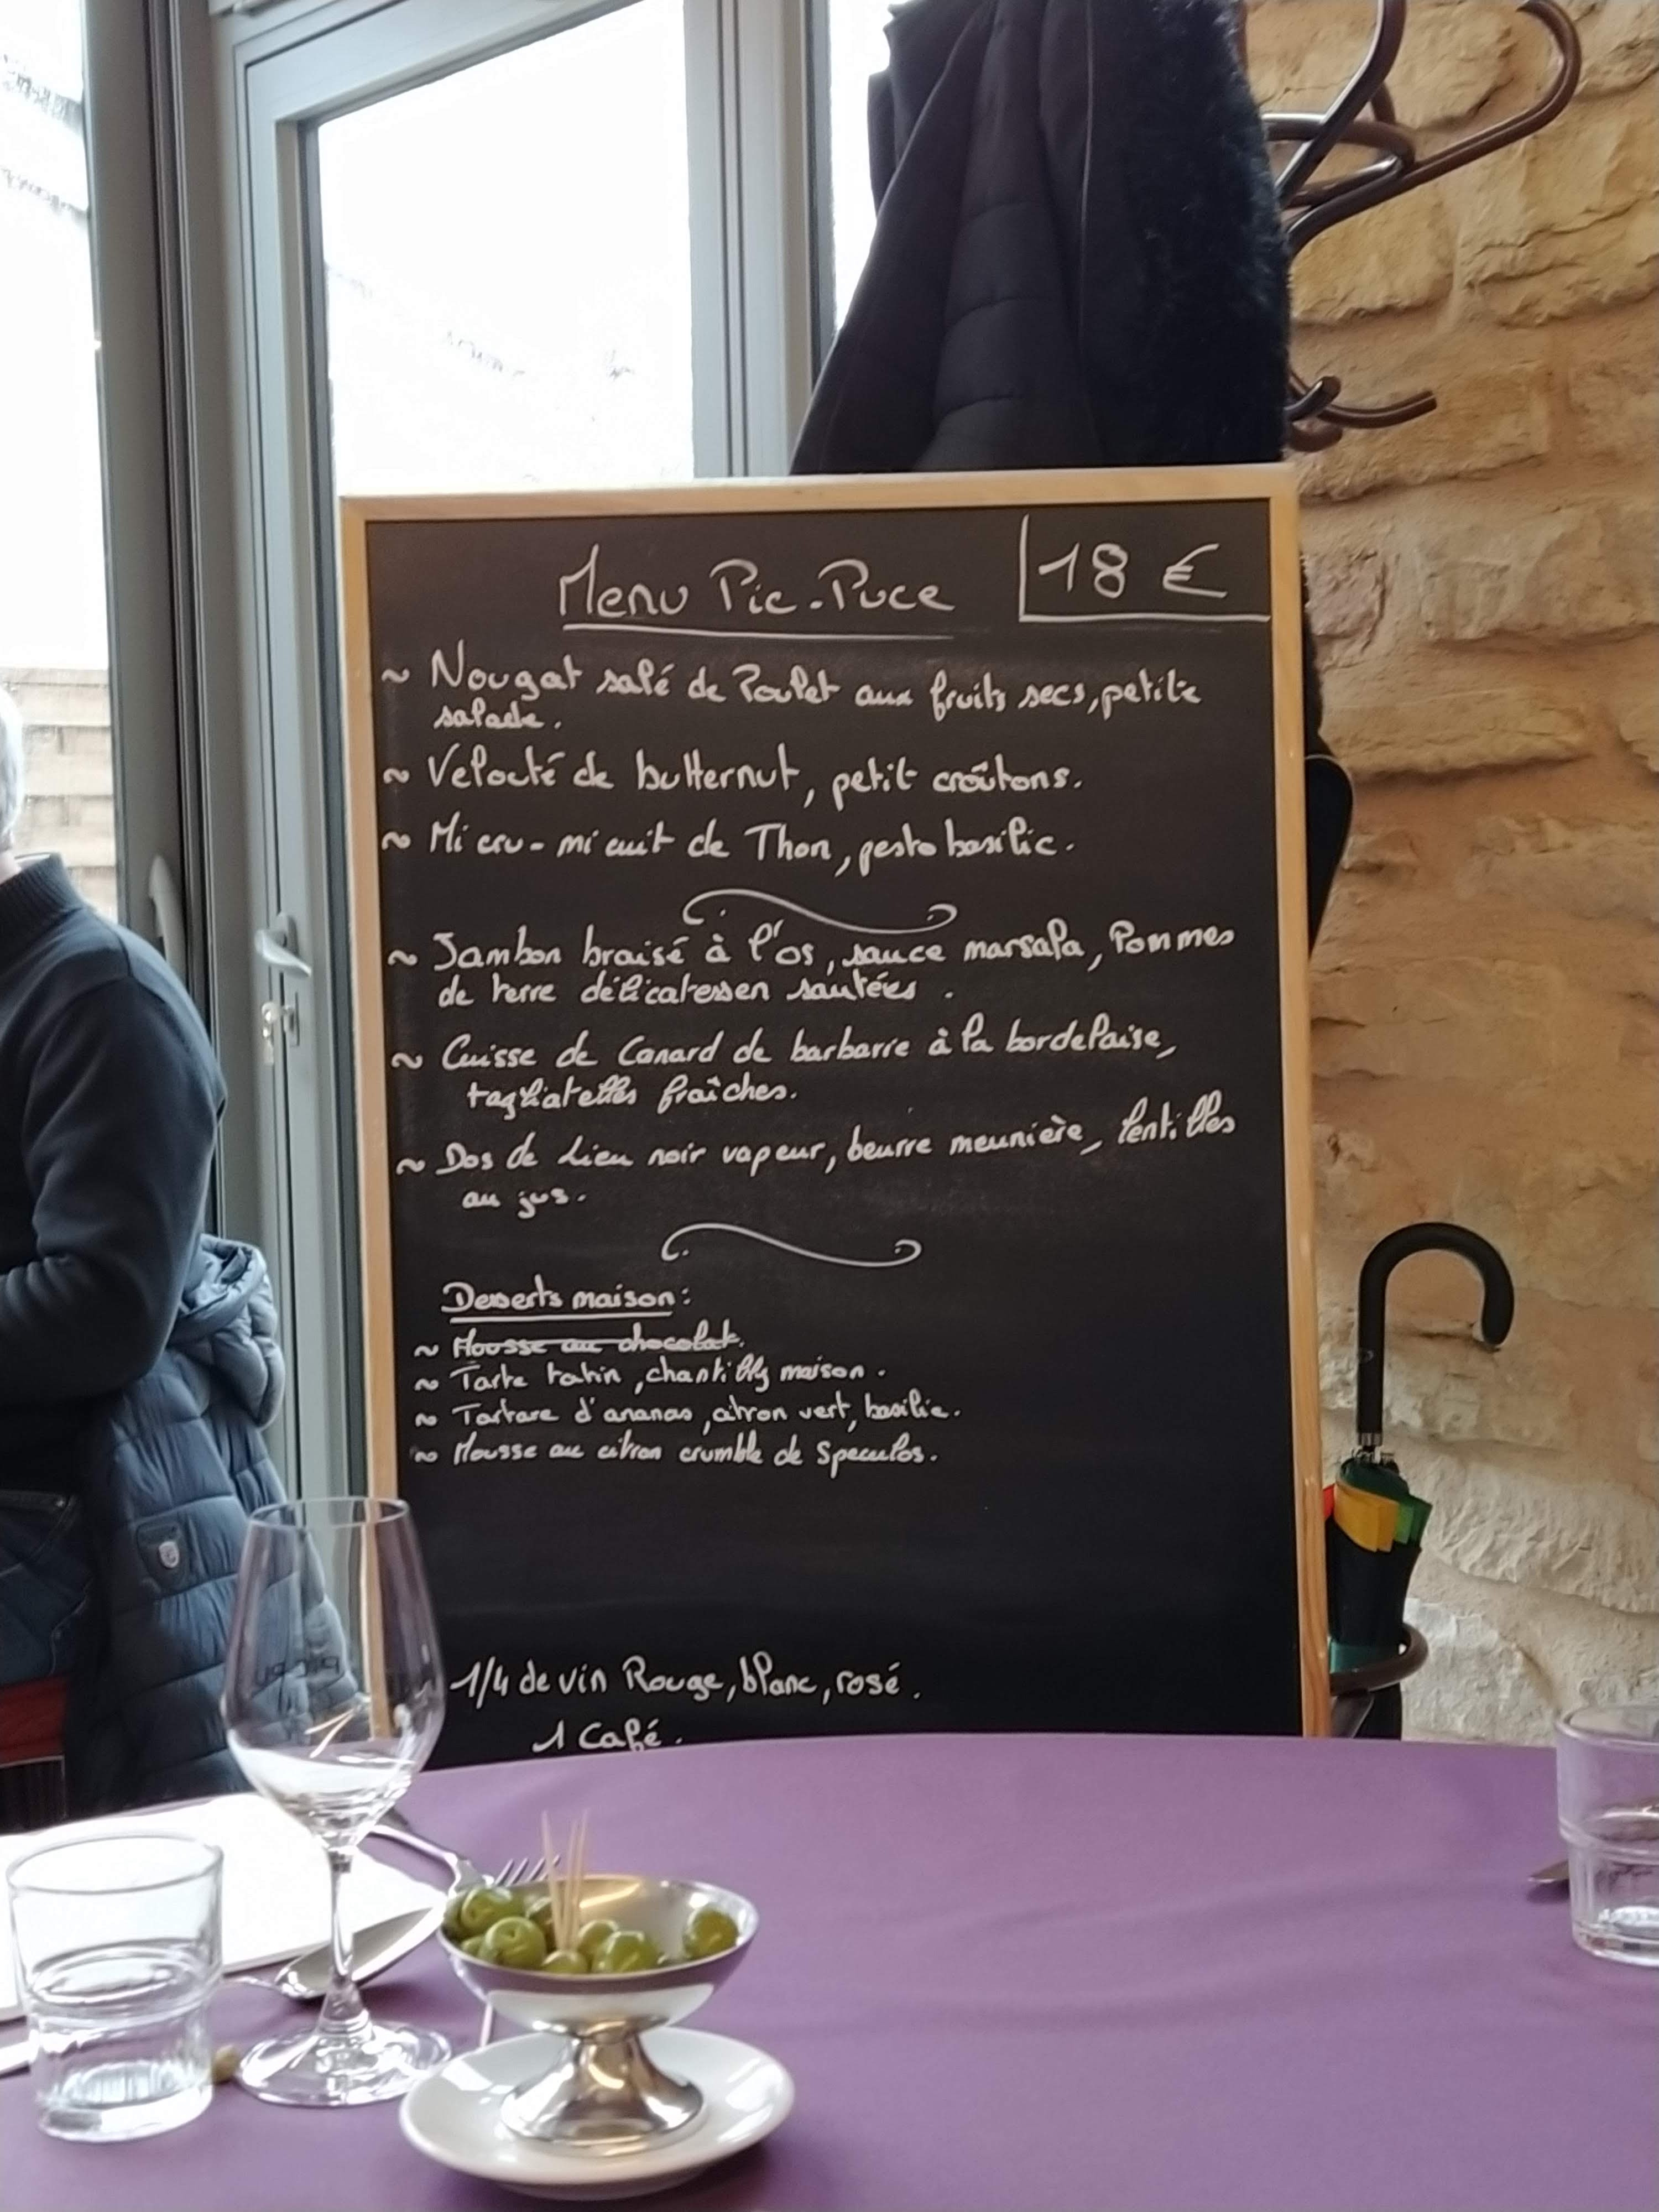 Menu Pic-Puce
18 €
~ Nougat salé de Poulet aux fruits secs, petite
salade.
~ Velouté de butternut, petit croûtons.
~ Mi cru-mi cuit de Thon, pesto basilic.
~ Jambon braisé à l'os, sauce marsala, Pommes
de terre délicatessen sautées.
~ Cuisse de Canard de barbarie à la bordelaise,
tagliatelles fraîches.
~ Dos de Lieu noir vapeur, beurre meunière, lentilles
au jus.
Desserts maison:
~ Mousse au chocolat.
~ Tarte tatin, chantilly maison.
~ Tartare d'ananas, citron vert, basilic.
~ Mousse au citron crumble de Speculos.
1/4 de vin Rouge, blanc, rosé.
1 Café.